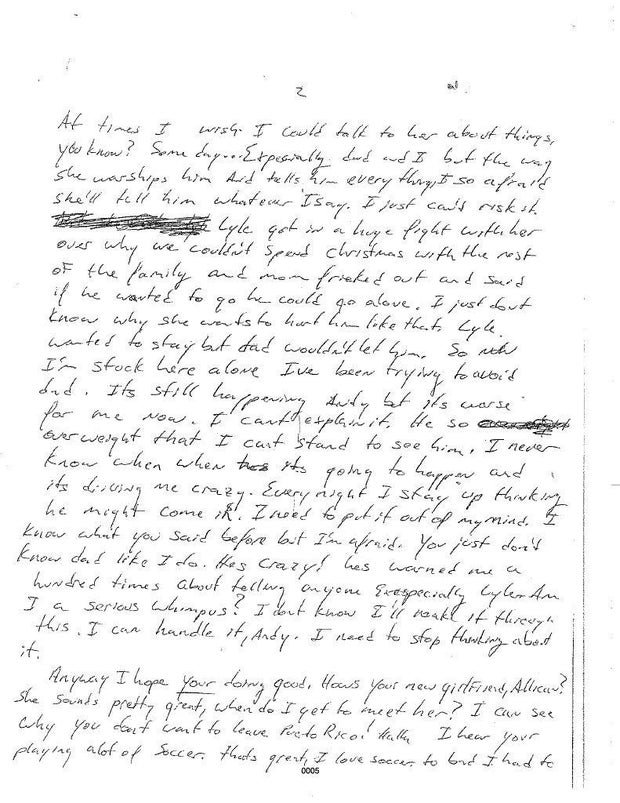 2
At times I wish I could talk to her about things,
you know? Some day... Expecially dad and I but the way
she worships him and tells him everything, I so afraid
she'll tell him whatever I say. I just can't risk it
Lyle got in a huge fight with her
over why we couldn't spend christmas with the rest
of the family and mom frieked out and said
if he wanted to go he could go alone. I just dont
know why she wants to hurt him like that. Lyle
wanted to stay but dad wouldn't let him. So now
I'm stuck here alone I've been trying to avoid
dad. Its still happening Andy but its worse
for me now. I cant explain it. He so
overweight that I cant stand to see him. I never
know when when its going to happen and
its driving me crazy. Every night I stay up thinking
he might come in. I need to put it out of my mind. I
know what you said before but I'm afraid. You just don't
know dad like I do. Hes crazy! hes warned me a
hundred times about telling anyone Exespecially Lyle. Am
I a serious whimpus? I dont know I'll make it through
this. I can handle it, Andy. I need to stop thinking about
it.
Anyway I hope your doing good. Hows your new girlfriend, Allican?
She sounds pretty great, when do I get to meet her? I can see
why you dont want to leave Puerto Rico! HaHa I hear your
playing alot of soccer. thats great, I love soccer to but I had to
0005